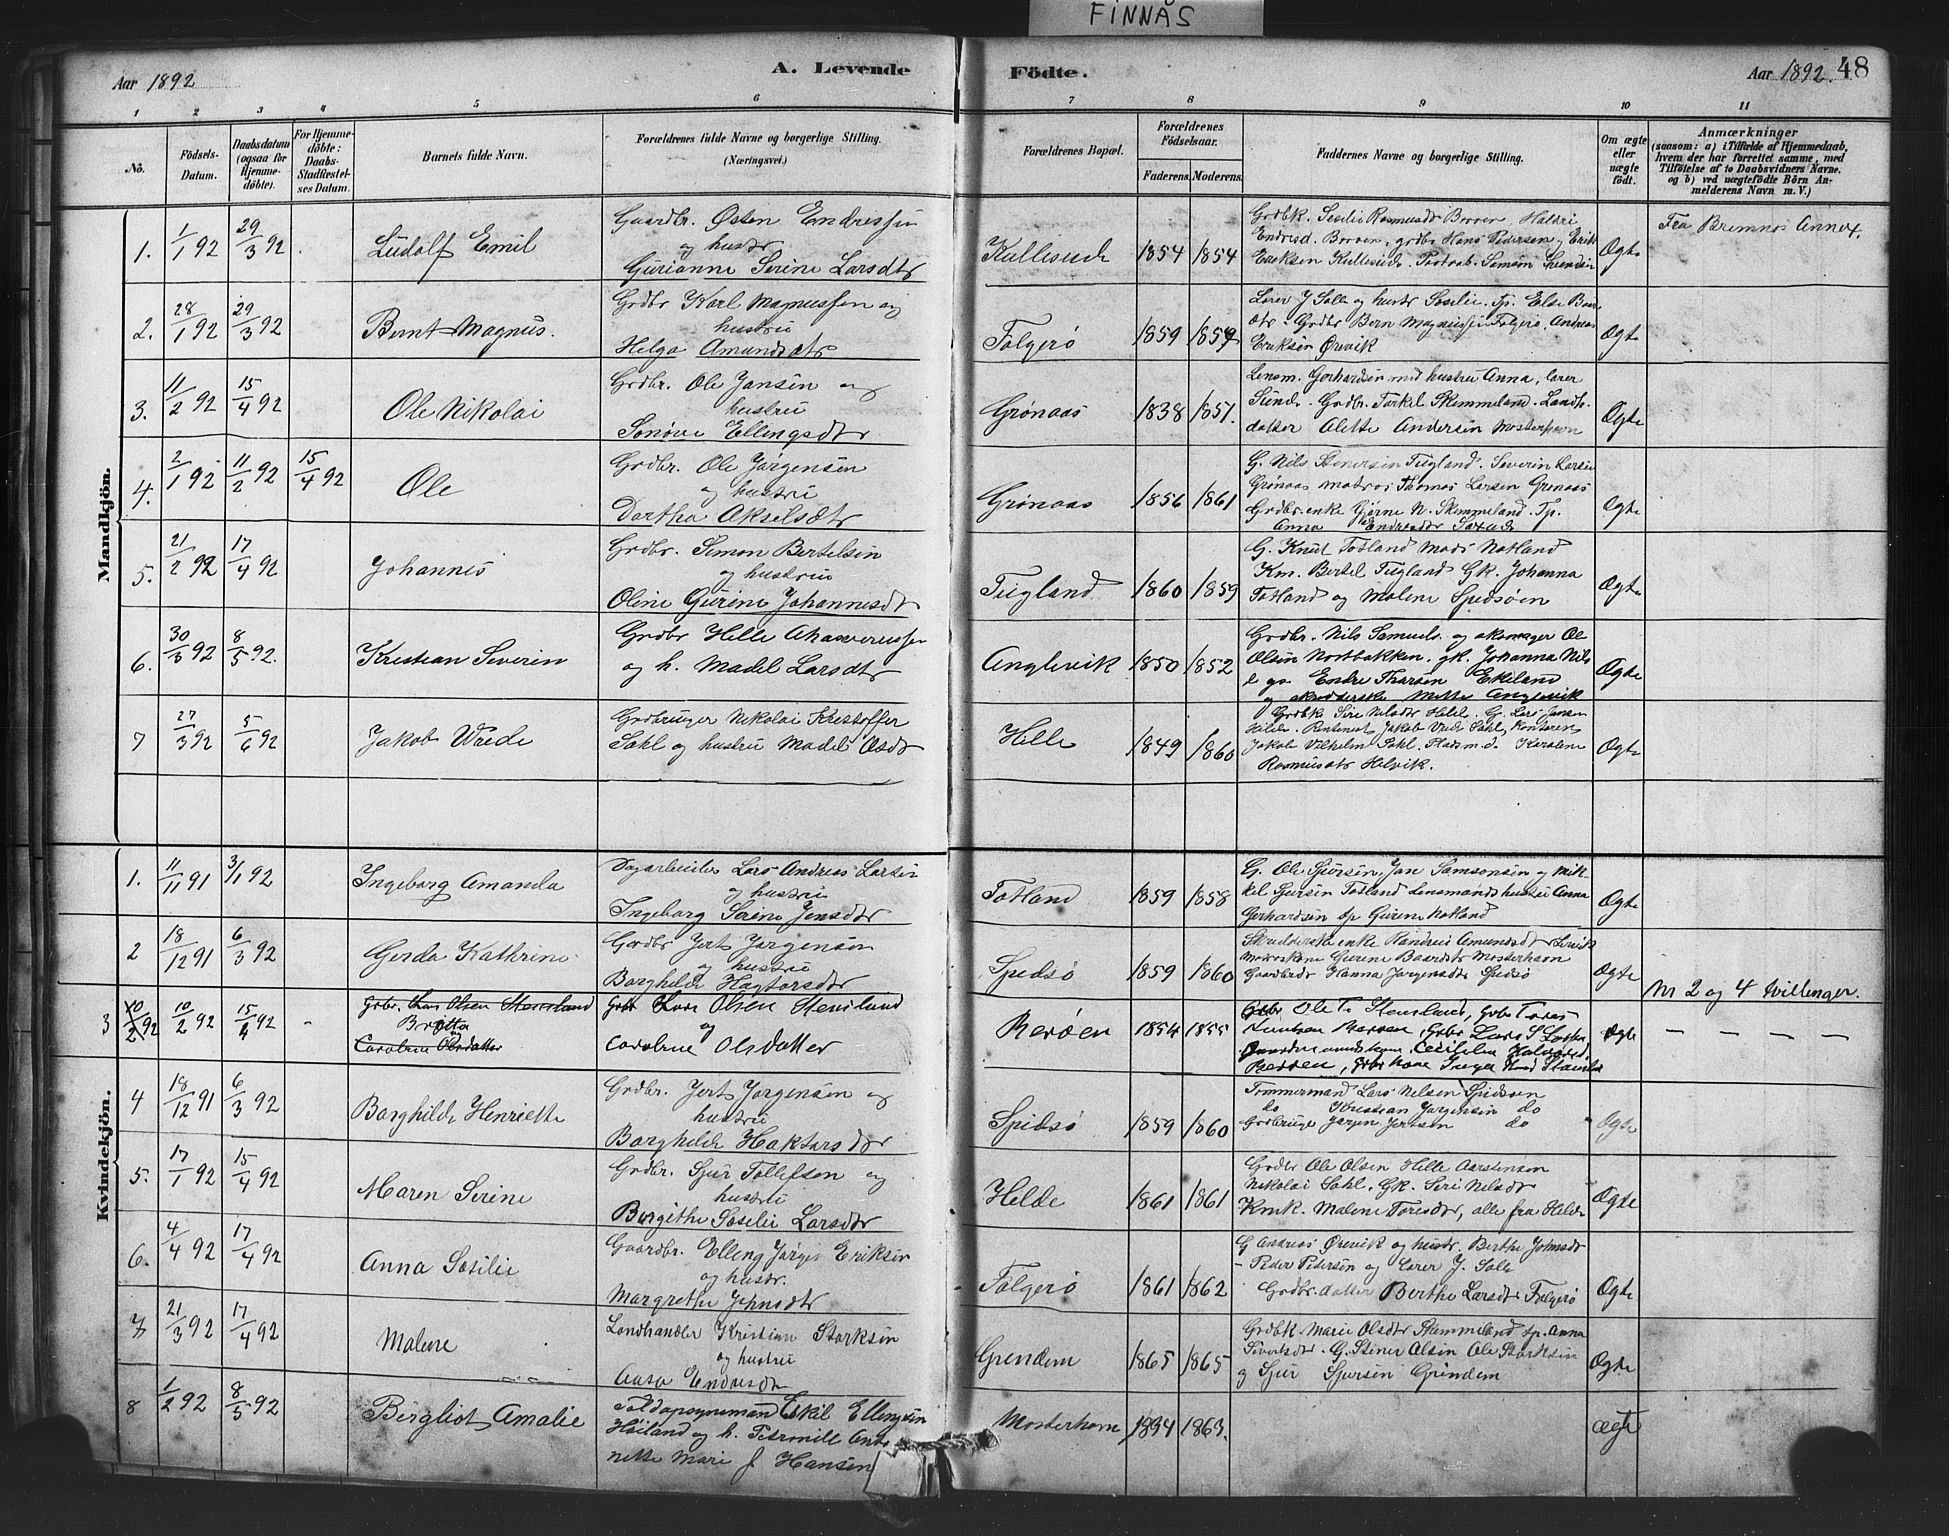 FINNÅS
Aar 1892
A. Levende
Födte.
Aar 1892. 48
1 2 3 4 5 6 7 8 9 10 11
No.
Födsels-
Datum.
Daabsdatum
(ogsaa for
Hjemme-
döbte).
For Hjemme-
döbte:
Daabs-
Stadfæstel-
ses Datum.
Barnets fulde Navn.
Forældrenes fulde Navne og borgerlige Stilling.
(Næringsvei.)
Forældrenes Bopæl.
Forældrenes
Födselsaar.
Faderens. Moderens.
Faddernes Navne og borgerlige Stilling.
Om ægte
eller
uægte
födt.
Anmærkninger
(saasom: a) i Tilfælde af Hjemmedaab,
hvem der har forrettet samme, med
Tilföielse af to Daabsvidners Navne.
og b) ved uægtefödte Börn An-
melderens Navn m. V.)
Mandkjön.
1. 1/1 92 29/3 92 Ludolf Emil
Gaardbr. Østen Endressen
og hustr
Gurianne Serine Larsdtr
Kallesude 1854 1854
Grdbk. Sesilie Rasmusdtr
Endresd. grdbr Hans Pedersen, Erik
Eriksen
Ægte
Fra Bremnes Annex.
2. 28/1 92 29/3 92 Bernt Magnus.
Grdbr Karl Magnussen og
hustrü
Helga Amundsdtr
Folgerø 1859 1859
Lærer J Solle og hustr Sesilie. Tp. Else
dtr. Grdbr Bern Magnussen Folgerø, Andreas
Eriksen Ørevik
Ægte
3. 11/2 92 15/4 92 Ole Nikolai
Grdbr. Ole Jansen og
hustrü
Sønøve Ellingsdtr
Grønaas 1838 1851.
Lensm. Gerhardsen med hustrü Anna, lærer
Sünde. Grdbr. Torkel Skimmeland. Landh.
datter Alette Andersen Mosterhavn
Ægte
4. 2/1 92 11/2 92 15/4 92 Ole
Grdbr. Ole Jørgensen
og hustrü
Dortha Akselsdtr
Grønaas 1856 1861
G. Nils Stenersen Tügland. Severin Larsen
Grønaas matros Thomas Larsen Grønaas
Grdbr. enke Gjørne N. Skimmeland. Tp.
Anna Endresdtr
Ægte
5. 21/2 92 17/4 92 Johannes
Grdbr. Simon Bertelsen
og hustrü
Oline Gurine Johannesdtr
Tügland 1860 1859
G. Knut Totland Mads Notland
Km. Bertel Tügland Gk. Johanna
Totland og Malene Spidsøen
Ægte
6. 30/3 92 8/5 92. Kristian Severin
Grdbr Helle Ahasverussen
og h. Madel Larsdtr
Anglevik 1850 1852
Grdbr. Nils Samuels. og skomager Ole
Olsen Nortbakken, gk. Johanna Nils
Endre Thorsen Ekeland
og Mette Anglevik
Ægte
7 27/3 92 5/6 92 Jakob Wrede
Grdbruger Nikolai Kristoffer
Sahl og hustrü Madel Osdtr
Hille 1849 1860
Grdbk. Siri Nilsdtr G. Lars Jansen
Jakob Sahl,
Jakob Vilhelm Sahl. Karoline
Rasmusdtr Helvik.
Ægte
Kvindekjön.
1. 11/11 91 3/1 92 Ingeborg Amanda
Dagarbeider Lars Andreas Larsen
og hustrü
Ingeborg Serine Jensdtr
Totland 1859 1858
G. Ole Sjursen, Jan Samsonsen og Mik-
kel Sjursen Totland lensmands hustrü Anna
Gerhardsen tp Gurene Notland
Ægte
2 18/12 91 6/3 92 Gerda Kathrine
Grdbr Jert Jørgensen
og hustrü
Borghilde Hagtorsdtr
Spidsø 1859 1860
enke Amundsdtr
Gurine Baardtr Mosterhavn
Hanna Jørgensdtr Spidsø
Ægte
Nr 2 og 4 tvillinger.
3 10/2 92 10/2 92 15/4 92 -
Grbr. Lars Olsen Stensland
Britta
og
Caroline Olsdatter
Grbr Lars Olsen Stensland
og
Caroline Olsdatter
Rerøen 1854 1855
Gbr. Ole T. Stensland, Gbr Tores
Knutsen Rerøen, Gbr Lars S
Cecilie
Rerøen, Inger
Ægte
— — — —
4 18/12 91 6/3 92 Borghilde Henriette
Grdbr. Jert Jørgensen og
hustrü
Borghilde Haktorsdtr
Spidsø 1859 1860
Tømmermand Lars Nilsen Spidsøen
do Kristian Jørgensen do
Grdbruger Jørgen Jertsen do
Ægte
5. 17/1 92 15/4 92 Maren Serine
Grdbr. Sjur Tollefsen og
hustrü
Borgithe Sesilie Larsdtr
Helde 1861 1861
Grdbr Ole Olsen Hille Aarstenson
Nikolai Sahl. Gk. Siri Nilsdtr
Kmk. Malene Toresdtr, alle fra Hilde
Ægte
6. 4/4 92 17/4 92 Anna Sesilie
Gaardbr. Elling Jørgen Eriksen
og hustr.
Margrethe Johnsdtr
Folgerø 1861 1862
G Andreas Ørevik og hustr. Berthe Johnsdtr
- Peder Pedersen og Lærer J. Solle
Grdbr. datter Berthe Larsdtr Folgerø
Ægte
7 21/3 92 17/4 92 Malene
Landhandler Kristian Storksen
og hustrü
Aasa Endresdtr
Grindem 1865 1865
Grdbk Marie Olsdtr Skimmeland tp. Anna
Siverdtsdtr. G. Stener Olsen Ole Storksen
og Sjur Sjursen Grindem
Ægte
8 1/2 92 8/5 92 Bergliot Amalie
Toldopsynsmand Eskil Ellingsen
Høiland og h. Petronille Anto
nette Mari J Hansen
Mosterhavn 1834 1863.
ægte